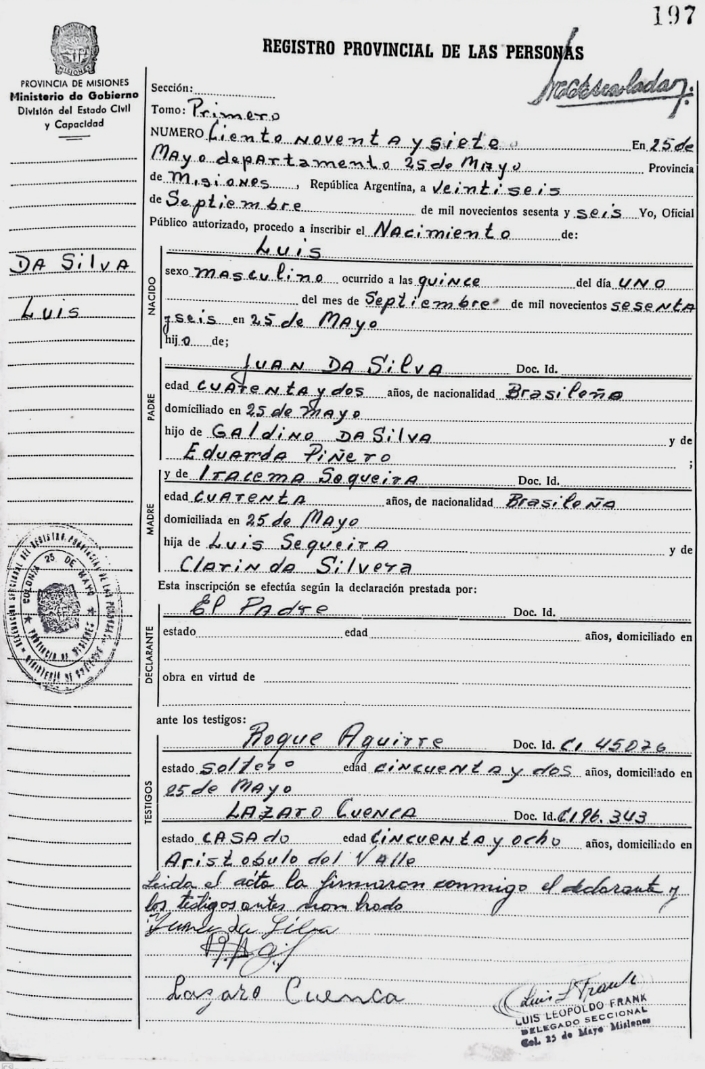 197
REGISTRO PROVINCIAL DE LAS PERSONAS
PROVINCIA DE MISIONES
Ministerio de Gobierno
División del Estado Civil
y Capacidad
DA SilvA
Luis
Sección:
Tomo: Primero
NUMERO Ciento Noventa y siete En 25 de
Mayo departamento 25 de Mayo Provincia
de Misiones, República Argentina, a veintiseis
de Septiembre de mil novecientos sesenta y seis Yo, Oficial
Público autorizado, procedo a inscribir el Nacimiento de:
NACIDO
Luis
sexo masculino ocurrido a las quince del día UNO
del mes de Septiembre de mil novecientos sesenta
y seis en 25 de Mayo
hijo de;
PADRE
Juan Da Silva Doc. Id.
edad cuarenta y dos años, de nacionalidad Brasileña
domiciliado en 25 de Mayo
hijo de Galdino Da Silva y de
Eduarda Piñero ;
MADRE
y de Itacema Sequeira Doc. Id.
edad cuarenta años, de nacionalidad Brasileña
domiciliada en 25 de Mayo
hija de Luis Sequeira y de
Clarinda Silvera
Esta inscripción se efectúa según la declaración prestada por:
DECLARANTE
El Padre Doc. Id.
estado edad años, domiciliado en
obra en virtud de
ante los testigos:
TESTIGOS
Roque Aguirre Doc. Id. CI 45026
estado soltero edad cincuenta y dos años, domiciliado en
25 de Mayo
Lazaro Cuenca Doc. Id. CI 96.343
estado casado edad cincuenta y ocho años, domiciliado en
Aristobulo del Valle
Leida el acta la firmaron conmigo el declarante y
los testigos antes nombrado
Juan da Silva
Lazaro Cuenca
Luis L Frank
LUIS LEOPOLDO FRANK
DELEGADO SECCIONAL
Col. 25 de Mayo Misiones
COLONIA 25 DE MAYO
PROVINCIA DE MISIONES